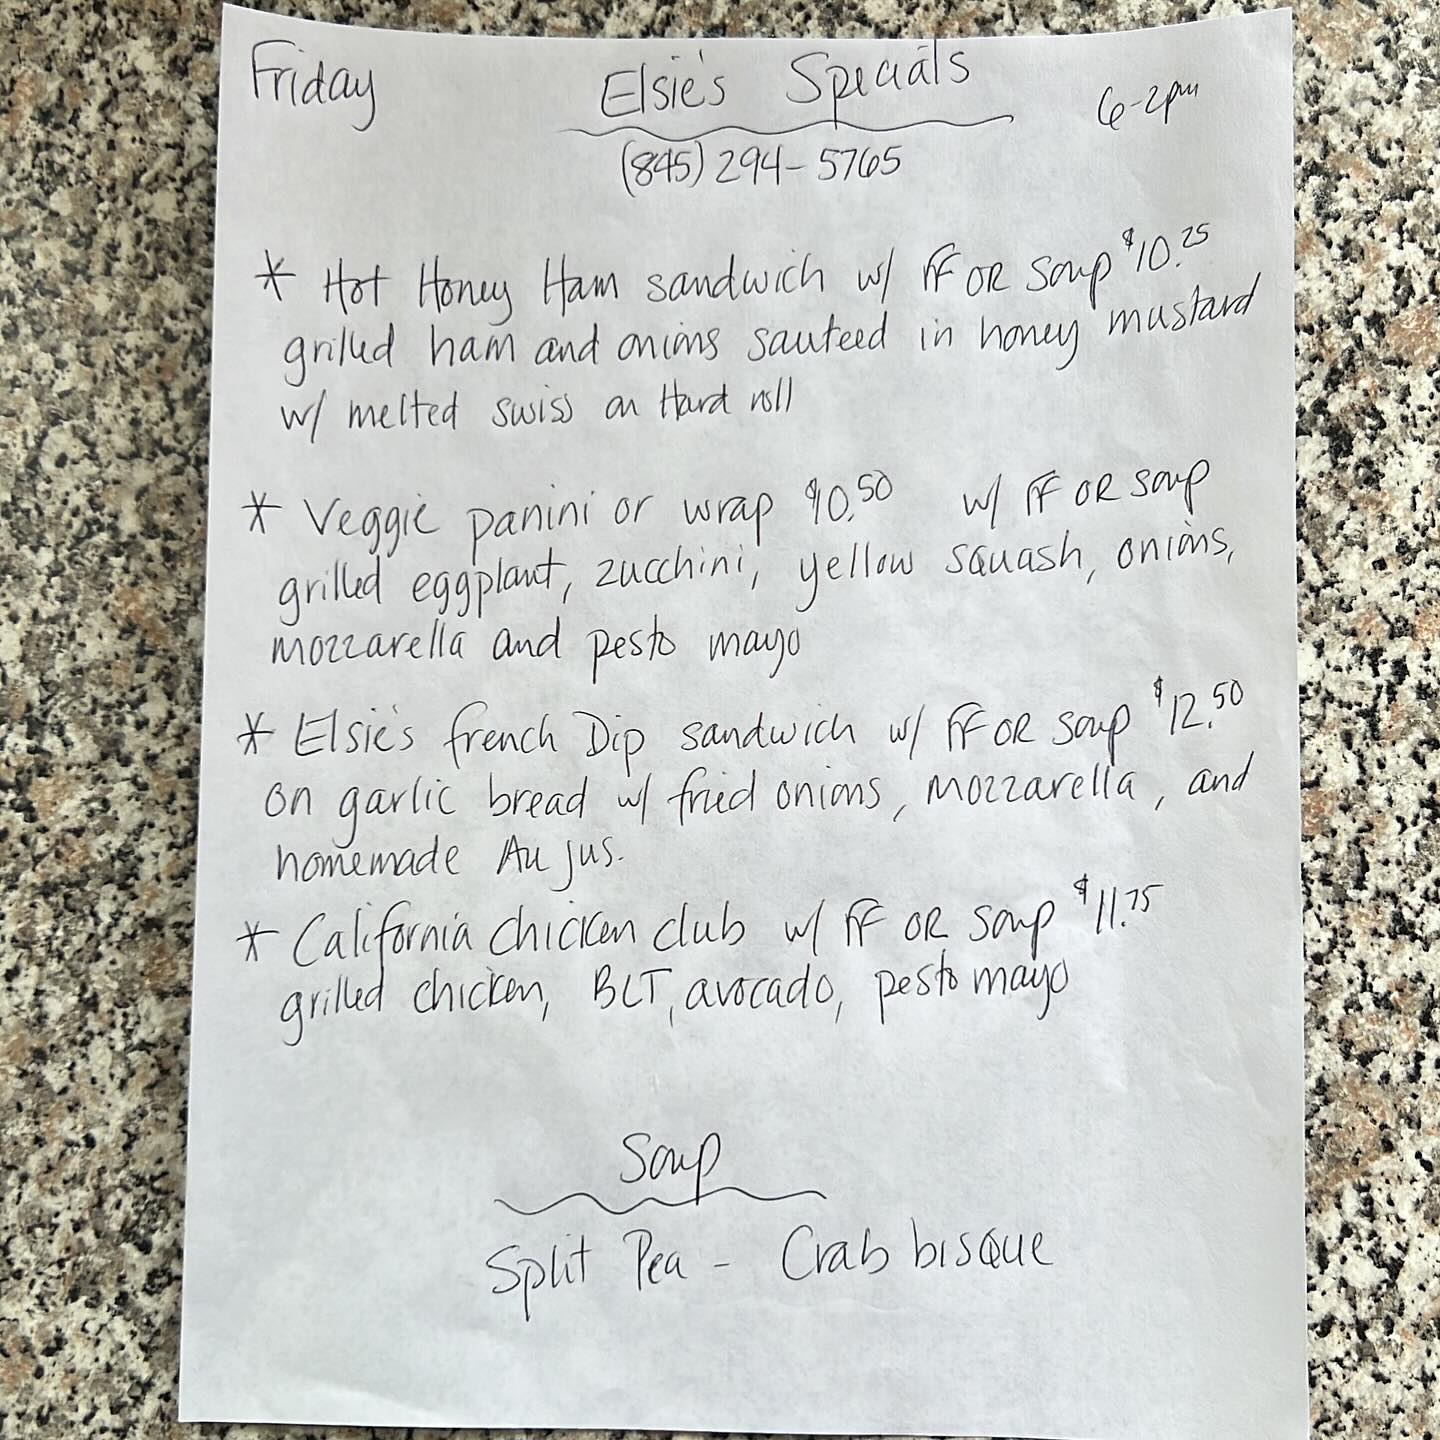 Friday Elsie's Specials 6-2pm
(845) 294-5765
* Hot Honey Ham sandwich w/ FF OR soup $10.25
grilled ham and onions sauteed in honey mustard
w/ melted swiss on Hard roll
* Veggie panini or wrap $10.50 w/ FF OR soup
grilled eggplant, zucchini, yellow squash, onions,
mozzarella and pesto mayo
* Elsie's french Dip sandwich w/ FF OR soup $12.50
on garlic bread w/ fried onions, mozzarella, and
homemade Au jus.
* California chicken club w/ FF OR soup $11.75
grilled chicken, BLT, avocado, pesto mayo
Soup
Split Pea - Crab bisque